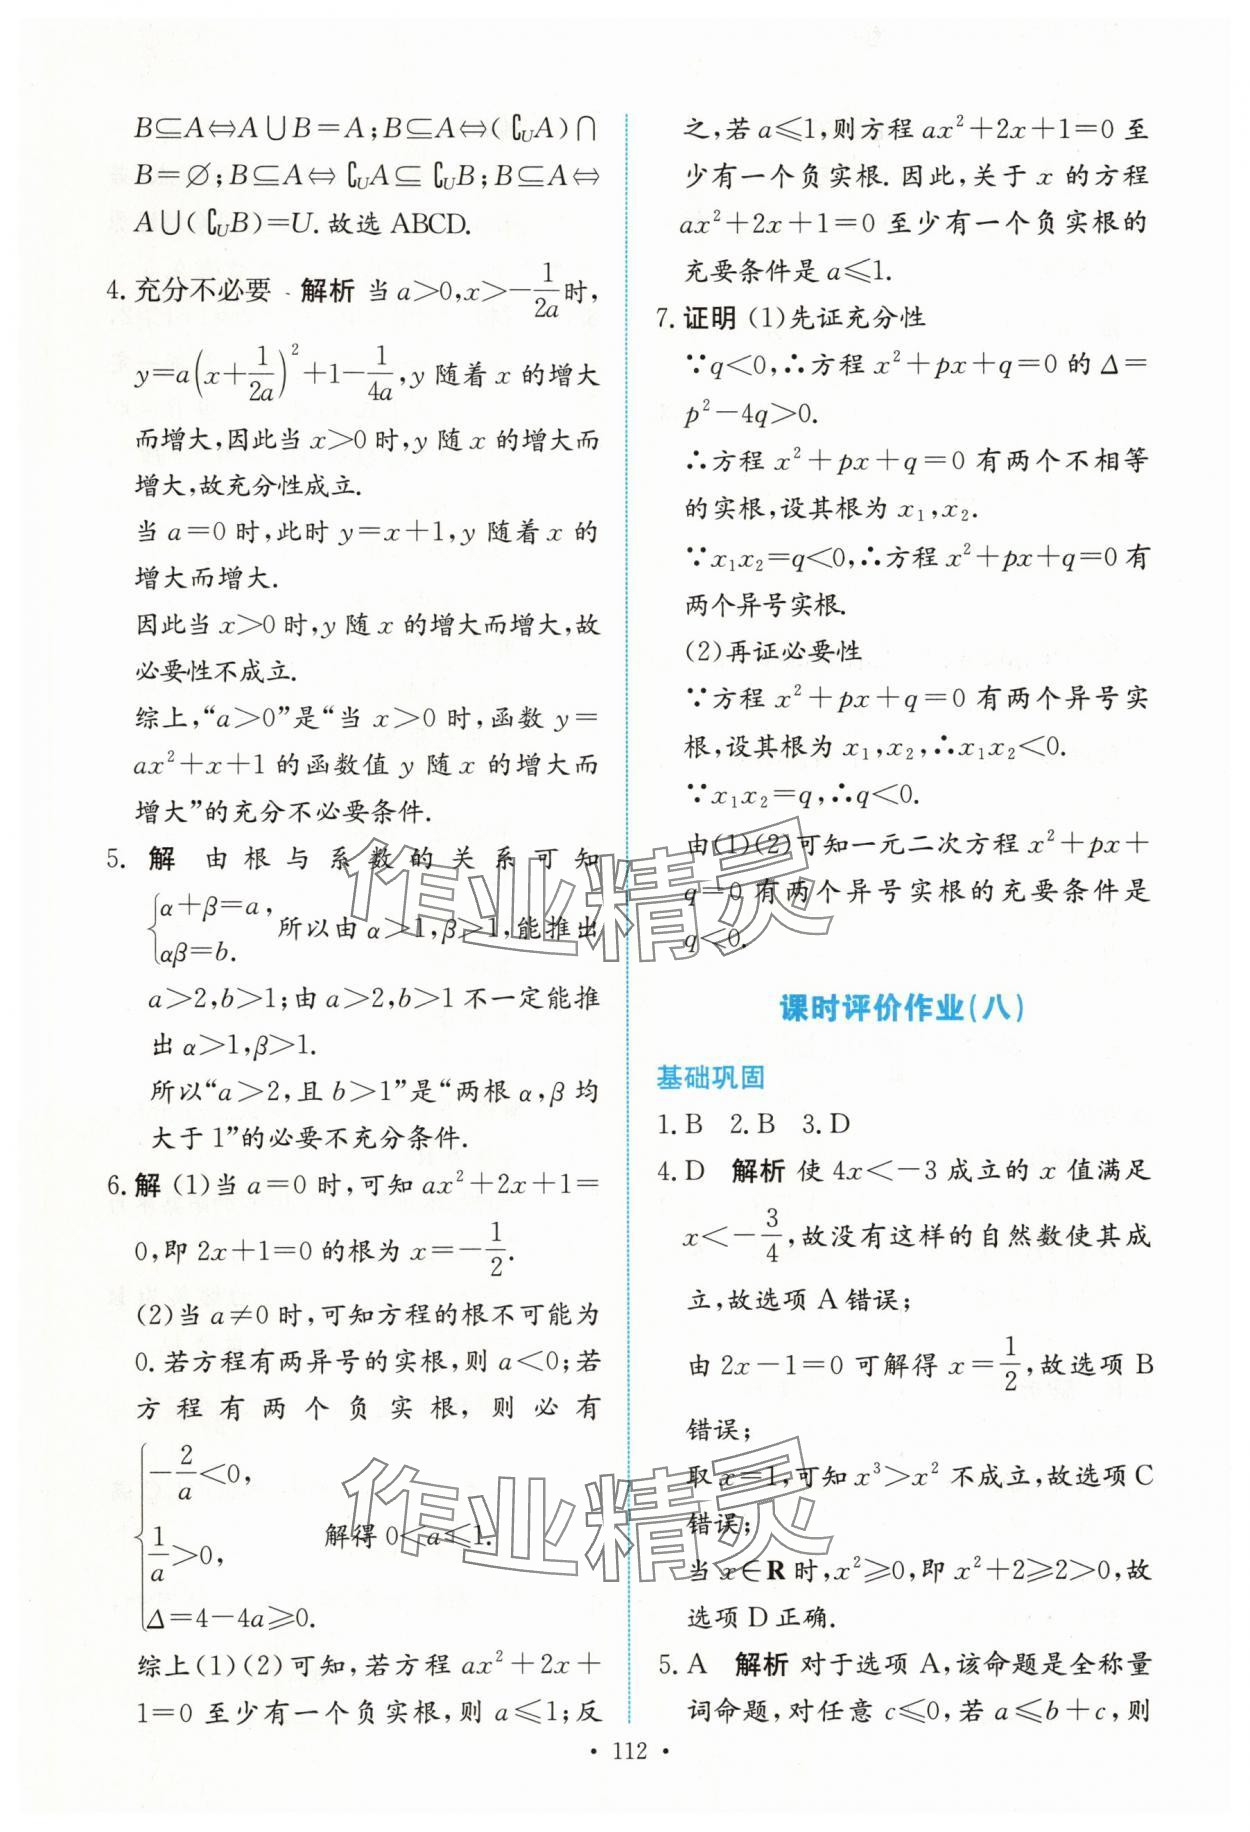 B⊆A⇔A∪B=A;B⊆A⇔(∁UA)∩
B=∅;B⊆A⇔∁UA⊆∁UB;B⊆A⇔
A∪(∁UB)=U.故选 ABCD.
4. 充分不必要 解析 当 a>0,x>-1/2a 时,
y=a(x+1/2a)²+1-1/4a,y 随着 x 的增大
而增大,因此当 x>0 时,y 随 x 的增大而
增大,故充分性成立.
当 a=0 时,此时 y=x+1,y 随着 x 的
增大而增大.
因此当 x>0 时,y 随 x 的增大而增大,故
必要性不成立.
综上,“a>0”是“当 x>0 时,函数 y=
ax²+x+1 的函数值 y 随 x 的增大而
增大”的充分不必要条件.
5. 解 由根与系数的关系可知
{α+β=a,
αβ=b. 所以由 α>1,β>1,能推出
a>2,b>1;由 a>2,b>1 不一定能推
出 α>1,β>1.
所以“a>2,且 b>1”是“两根 α,β 均
大于 1”的必要不充分条件.
6. 解 (1)当 a=0 时,可知 ax²+2x+1=
0,即 2x+1=0 的根为 x=-1/2.
(2)当 a≠0 时,可知方程的根不可能为
0.若方程有两异号的实根,则 a<0;若
方程有两个负实根,则必有
{-2/a<0,
1/a>0, 解得 0<a≤1.
Δ=4-4a≥0.
综上(1)(2)可知,若方程 ax²+2x+
1=0 至少有一个负实根,则 a≤1;反
之,若 a≤1,则方程 ax²+2x+1=0 至
少有一个负实根.因此,关于 x 的方程
ax²+2x+1=0 至少有一个负实根的
充要条件是 a≤1.
7. 证明 (1)先证充分性
∵q<0,∴方程 x²+px+q=0 的 Δ=
p²-4q>0.
∴方程 x²+px+q=0 有两个不相等
的实根,设其根为 x₁,x₂.
∵x₁x₂=q<0,∴方程 x²+px+q=0 有
两个异号实根.
(2)再证必要性
∵方程 x²+px+q=0 有两个异号实
根,设其根为 x₁,x₂,∴x₁x₂<0.
∵x₁x₂=q,∴q<0.
由(1)(2)可知一元二次方程 x²+px+
q=0 有两个异号实根的充要条件是
q<0.
课时评价作业(八)
基础巩固
1. B 2. B 3. D
4. D 解析 使 4x<-3 成立的 x 值满足
x<-3/4,故没有这样的自然数使其成
立,故选项 A 错误;
由 2x-1=0 可解得 x=1/2,故选项 B
错误;
取 x=1,可知 x³>x² 不成立,故选项 C
错误;
当 x∈R 时,x²≥0,即 x²+2≥2>0,故
选项 D 正确.
5. A 解析 对于选项 A,该命题是全称量
词命题,对任意 c≤0,若 a≤b+c,则
• 112 •
作业精灵
作业精灵